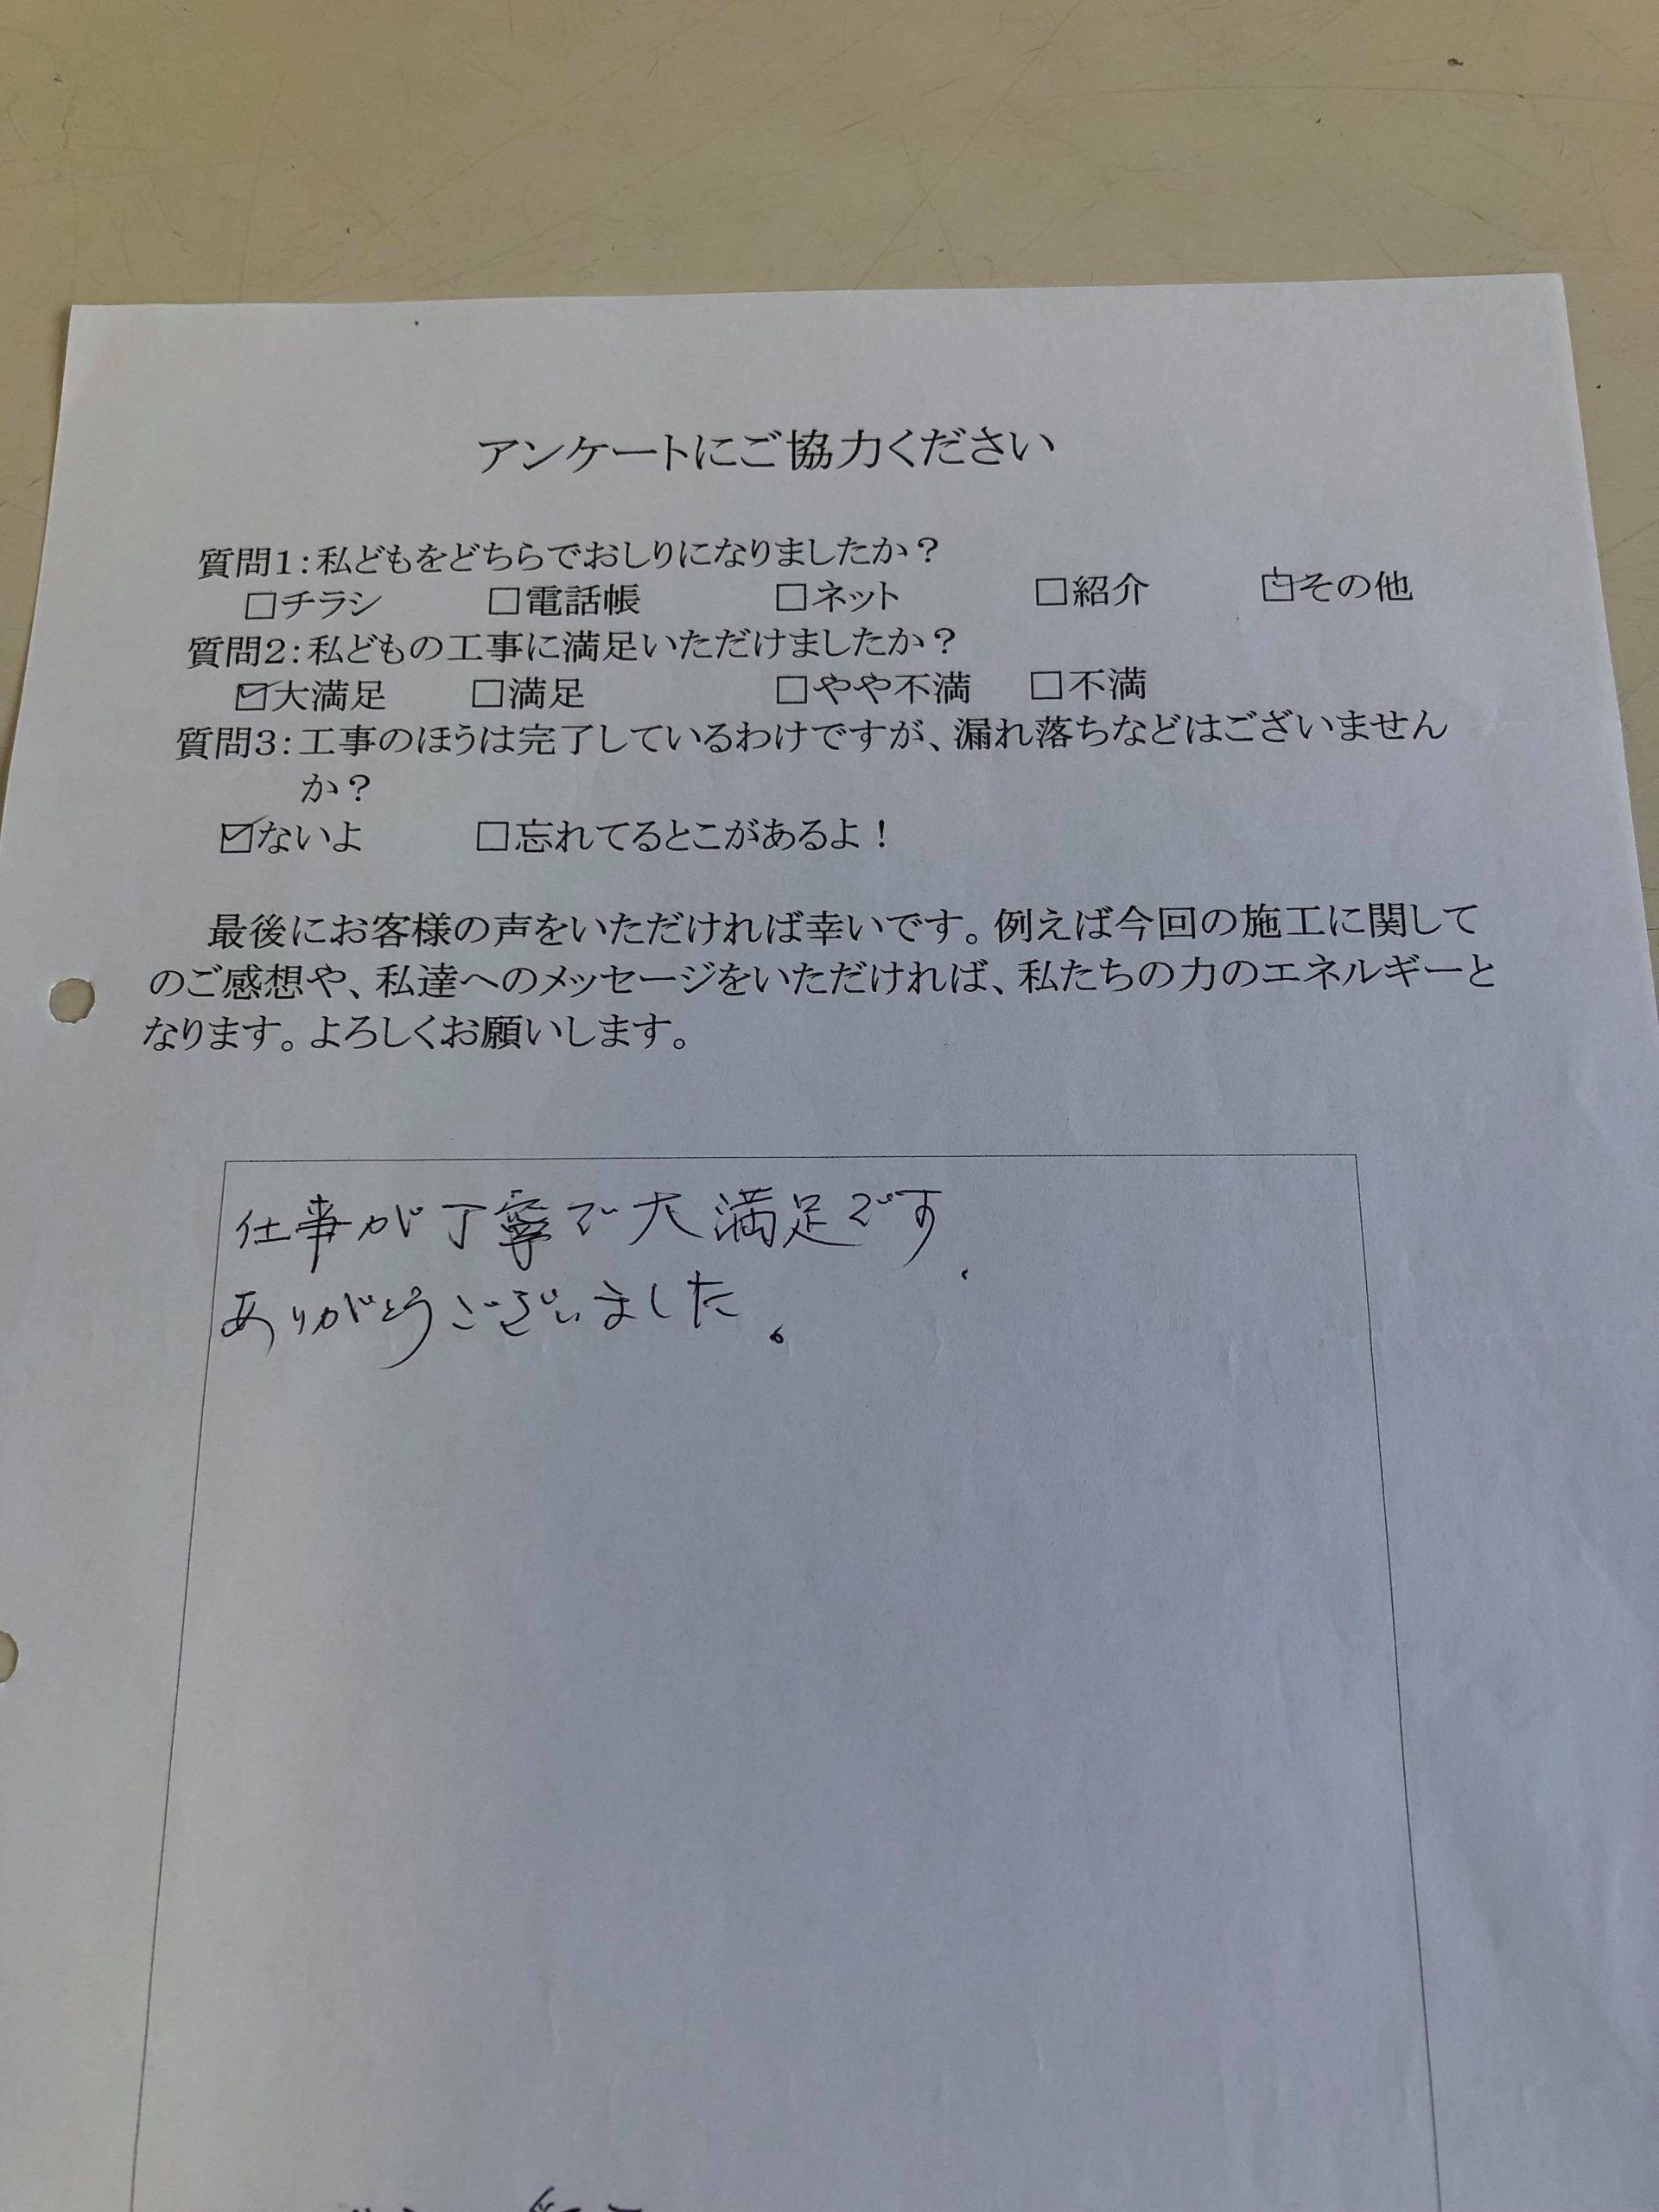 アンケートにご協力ください
質問1：私どもをどちらでおしりになりましたか？
□チラシ □電話帳 □ネット □紹介 ☑その他
質問2：私どもの工事に満足いただけましたか？
☑大満足 □満足 □やや不満 □不満
質問3：工事のほうは完了しているわけですが、漏れ落ちなどはございません
か？
☑ないよ □忘れてるとこがあるよ！
最後にお客様の声をいただければ幸いです。例えば今回の施工に関して
のご感想や、私達へのメッセージをいただければ、私たちの力のエネルギーと
なります。よろしくお願いします。
仕事が丁寧で大満足です、
ありがとうございました。